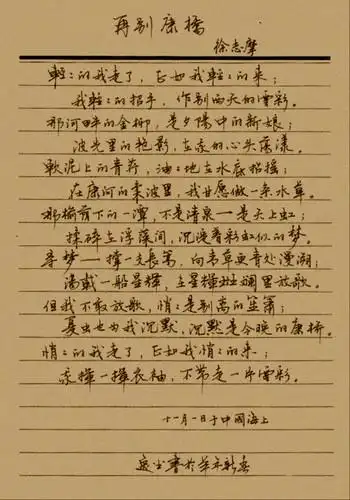 再别康橋
徐志摩
輕:的我走了，正如我輕:的来；
我輕:的招手，作别西天的雲彩。
那河畔的金柳，是夕陽中的新娘；
波光里的艳影，在我的心头荡漾。
軟泥上的青荇，油:地在水底招摇；
在康河的柔波里，我甘愿做一条水草。
那榆荫下的一潭，不是清泉一是天上虹；
揉碎在浮藻间，沉淀着彩虹似的梦。
寻梦——撑一支長篙，向青草更青处漫溯；
满载一船星辉，在星辉斑斓里放歌。
但我不敢放歌，悄:是别离的笙箫；
夏虫也为我沉默，沉默是今晚的康桥。
悄:的我走了，正如我悄:的来；
我揮一揮衣袖，不带走一片雲彩。
十一月一日于中國海上